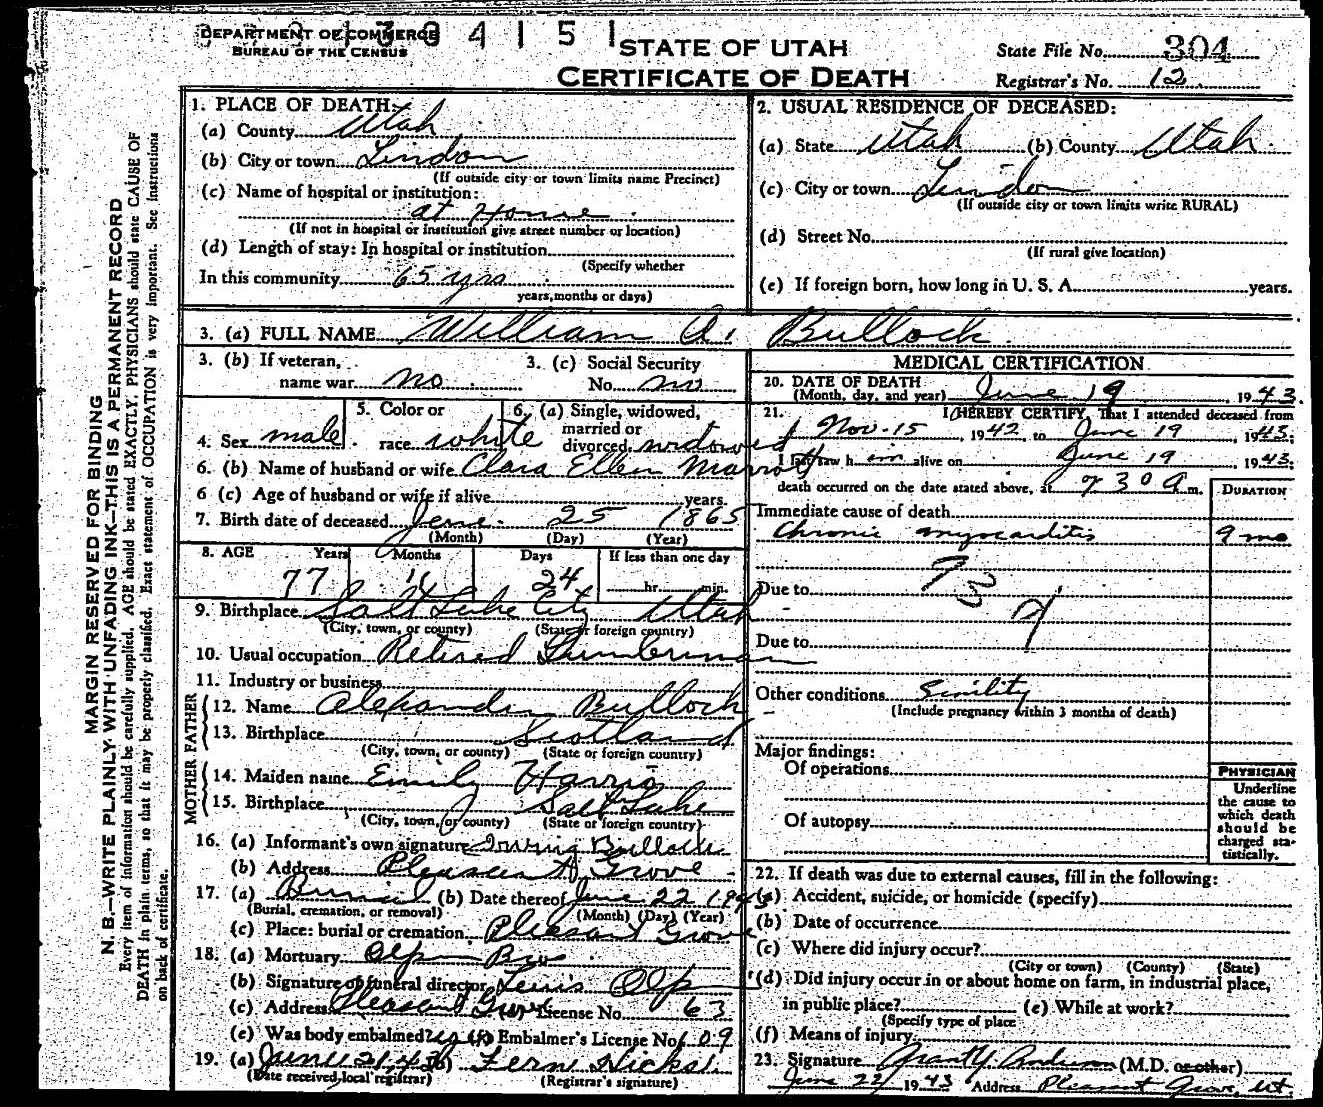 DEPARTMENT OF COMMERCE
BUREAU OF THE CENSUS
4 1 5 1
STATE OF UTAH
CERTIFICATE OF DEATH
State File No. 304
Registrar's No. 12
MARGIN RESERVED FOR BINDING
N. B.—WRITE PLAINLY WITH UNFADING INK—THIS IS A PERMANENT RECORD
Every item of information should be carefully supplied. AGE should be stated EXACTLY. PHYSICIANS should state CAUSE OF
DEATH in plain terms, so that it may be properly classified. Exact statement of OCCUPATION is very important. See instructions
on back of certificate.
1. PLACE OF DEATH:
(a) County Utah
(b) City or town Lindon
(If outside city or town limits name Precinct)
(c) Name of hospital or institution:
at Home
(If not in hospital or institution give street number or location)
(d) Length of stay: In hospital or institution
(Specify whether
In this community 65 yrs
years, months or days)
2. USUAL RESIDENCE OF DECEASED:
(a) State Utah (b) County Utah
(c) City or town Lindon
(If outside city or town limits write RURAL)
(d) Street No.
(If rural give location)
(e) If foreign born, how long in U. S. A. years.
3. (a) FULL NAME William A. Bullock
3. (b) If veteran,
name war no
3. (c) Social Security
No. no
4. Sex male
5. Color or
race white
6. (a) Single, widowed,
married or
divorced widowed
6. (b) Name of husband or wife Clara Ellen Marrott
6 (c) Age of husband or wife if alive years.
7. Birth date of deceased June 25 1865
(Month) (Day) (Year)
8. AGE Years Months Days If less than one day
77 11 24 hr. min.
9. Birthplace Salt Lake City Utah
(City, town, or county) (State or foreign country)
10. Usual occupation Retired Lumberman
11. Industry or business
FATHER
12. Name Alexander Bullock
13. Birthplace Scotland
(City, town, or county) (State or foreign country)
MOTHER
14. Maiden name Emily Harris
15. Birthplace Salt Lake
(City, town, or county) (State or foreign country)
16. (a) Informant's own signature Irving Bullock
(b) Address Pleasant Grove
17. (a) Burial (b) Date thereof June 22 1943
(Burial, cremation, or removal) (Month) (Day) (Year)
(c) Place: burial or cremation Pleasant Grove
18. (a) Mortuary Olpin Bros
(b) Signature of funeral director Olp
(c) Address Pleasant Grove License No. 63
(e) Was body embalmed? yes (f) Embalmer's License No. 09
19. (a) June 21, 43 (b) Fern Hicks
(Date received local registrar) (Registrar's signature)
MEDICAL CERTIFICATION
20. DATE OF DEATH
(Month, day, and year) June 19, 1943.
21. I HEREBY CERTIFY, That I attended deceased from
Nov. 15, 1942 to June 19, 1943;
I last saw him alive on June 19 1943;
death occurred on the date stated above, at 7 30 A m.
DURATION
Immediate cause of death
Chronic myocarditis 9 mo
Due to
93
Due to
Other conditions Senility
(Include pregnancy within 3 months of death)
Major findings:
Of operations
Of autopsy
PHYSICIAN
Underline
the cause to
which death
should be
charged sta-
tistically.
22. If death was due to external causes, fill in the following:
(a) Accident, suicide, or homicide (specify)
(b) Date of occurrence
(c) Where did injury occur?
(City or town) (County) (State)
(d) Did injury occur in or about home on farm, in industrial place,
in public place? (e) While at work?
(Specify type of place
(f) Means of injury
23. Signature Grant Y. Anderson (M.D. or other)
June 22, 1943 Address Pleasant Grove, Ut.